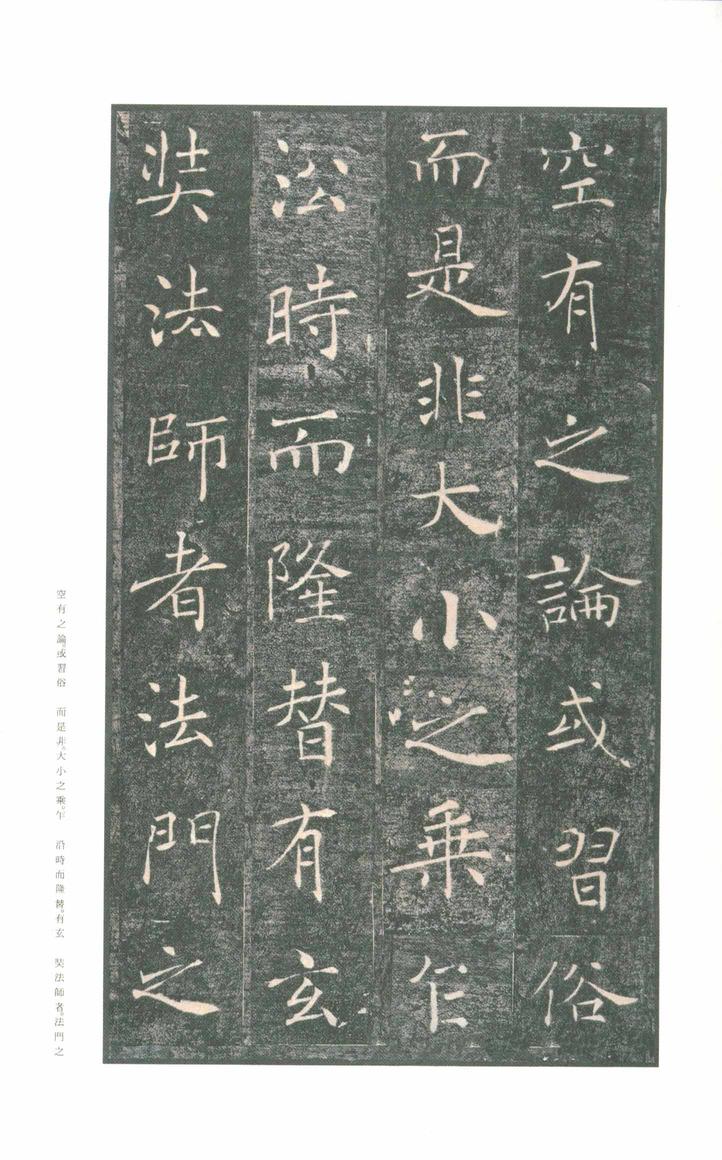 空有之論或習俗
而是非大小之乘乍
沿時而隆替有玄
奘法師者法門之
空有之論。或習俗　而是非。大小之乘。乍　沿時而隆替。有玄　奘法師者。法門之